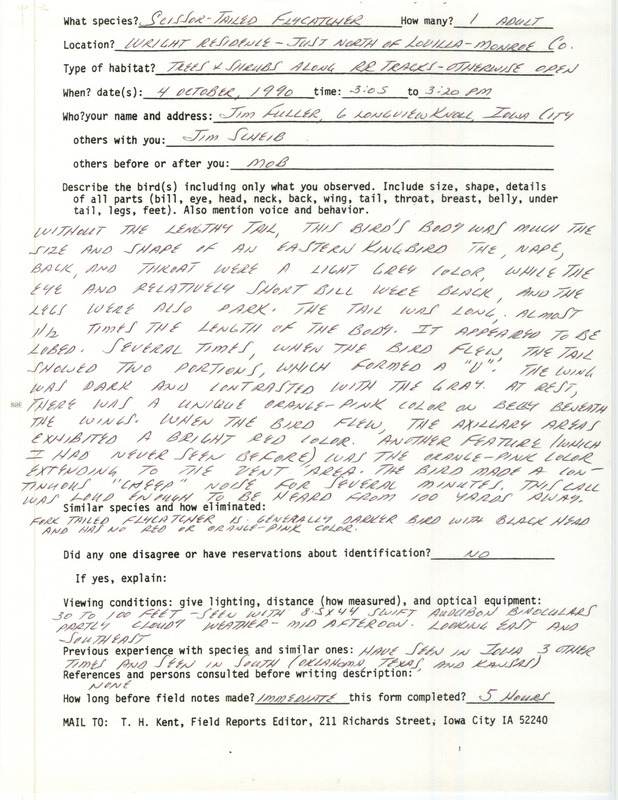 What species? SCISSOR-TAILED FLYCATCHER How many? 1 ADULT
Location? WRIGHT RESIDENCE - JUST NORTH OF LOVILLA - MONROE CO.
Type of habitat? TREES & SHRUBS ALONG RR TRACKS - OTHERWISE OPEN
When? date(s): 4 OCTOBER, 1990 time: 3:05 to 3:20 PM
Who?your name and address: JIM FULLER, 6 LONGVIEW KNOLL, IOWA CITY
others with you: JIM SCHEIB
others before or after you: MOB
Describe the bird(s) including only what you observed. Include size, shape, details
of all parts (bill, eye, head, neck, back, wing, tail, throat, breast, belly, under
tail, legs, feet). Also mention voice and behavior.
WITHOUT THE LENGTHY TAIL, THIS BIRD'S BODY WAS MUCH THE
SIZE AND SHAPE OF AN EASTERN KINGBIRD THE, NAPE,
BACK, AND THROAT WERE A LIGHT GREY COLOR, WHILE THE
EYE AND RELATIVELY SHORT BILL WERE BLACK, AND THE
LEGS WERE ALSO DARK. THE TAIL WAS LONG, ALMOST
1 1/2 TIMES THE LENGTH OF THE BODY. IT APPEARED TO BE
LOBED. SEVERAL TIMES, WHEN THE BIRD FLEW, THE TAIL
SHOWED TWO PORTIONS, WHICH FORMED A "U". THE WING
WAS DARK AND CONTRASTED WITH THE GRAY. AT REST,
THERE WAS A UNIQUE ORANGE-PINK COLOR ON BELLY BENEATH
THE WINGS. WHEN THE BIRD FLEW, THE AXILLARY AREAS
EXHIBITED A BRIGHT RED COLOR. ANOTHER FEATURE (WHICH
I HAD NEVER SEEN BEFORE) WAS THE ORANGE-PINK COLOR
EXTENDING TO THE VENT AREA. THE BIRD MADE A CON-
TINUOUS "CHEEP" NOISE FOR SEVERAL MINUTES. THIS CALL
WAS LOUD ENOUGH TO BE HEARD FROM 100 YARDS AWAY.
Similar species and how eliminated:
FORK TAILED FLYCATCHER IS GENERALLY DARKER BIRD WITH BLACK HEAD
AND HAS NO RED OR ORANGE-PINK COLOR.
Did any one disagree or have reservations about identification? NO
If yes, explain:
Viewing conditions: give lighting, distance (how measured), and optical equipment:
30 TO 100 FEET - SEEN WITH 8.5X44 SWIFT AUDUBON BINOCULARS
PARTLY CLOUDY WEATHER - MID AFTEROON. LOOKING EAST AND
SOUTHEAST
Previous experience with species and similar ones: HAVE SEEN IN IOWA 3 OTHER
TIMES AND SEEN IN SOUTH (OKLAHOMA, TEXAS, AND KANSAS)
References and persons consulted before writing description:
NONE
How long before field notes made? IMMEDIATE this form completed? 5 HOURS
MAIL TO: T. H. Kent, Field Reports Editor, 211 Richards Street, Iowa City IA 52240